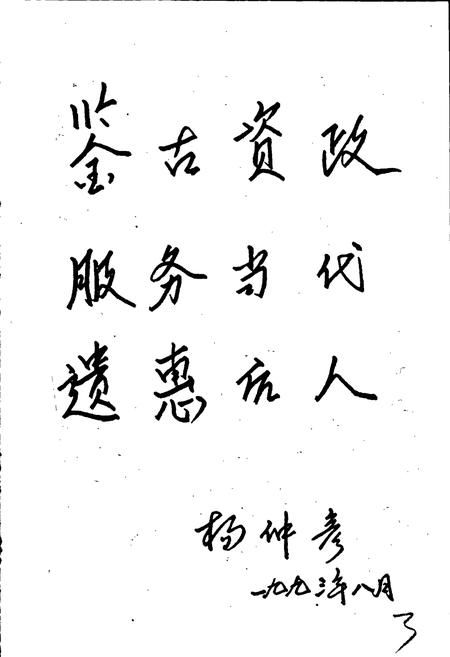 鉴古資政
服务当代
遗惠后人
杨仲彦
一九九三年八月